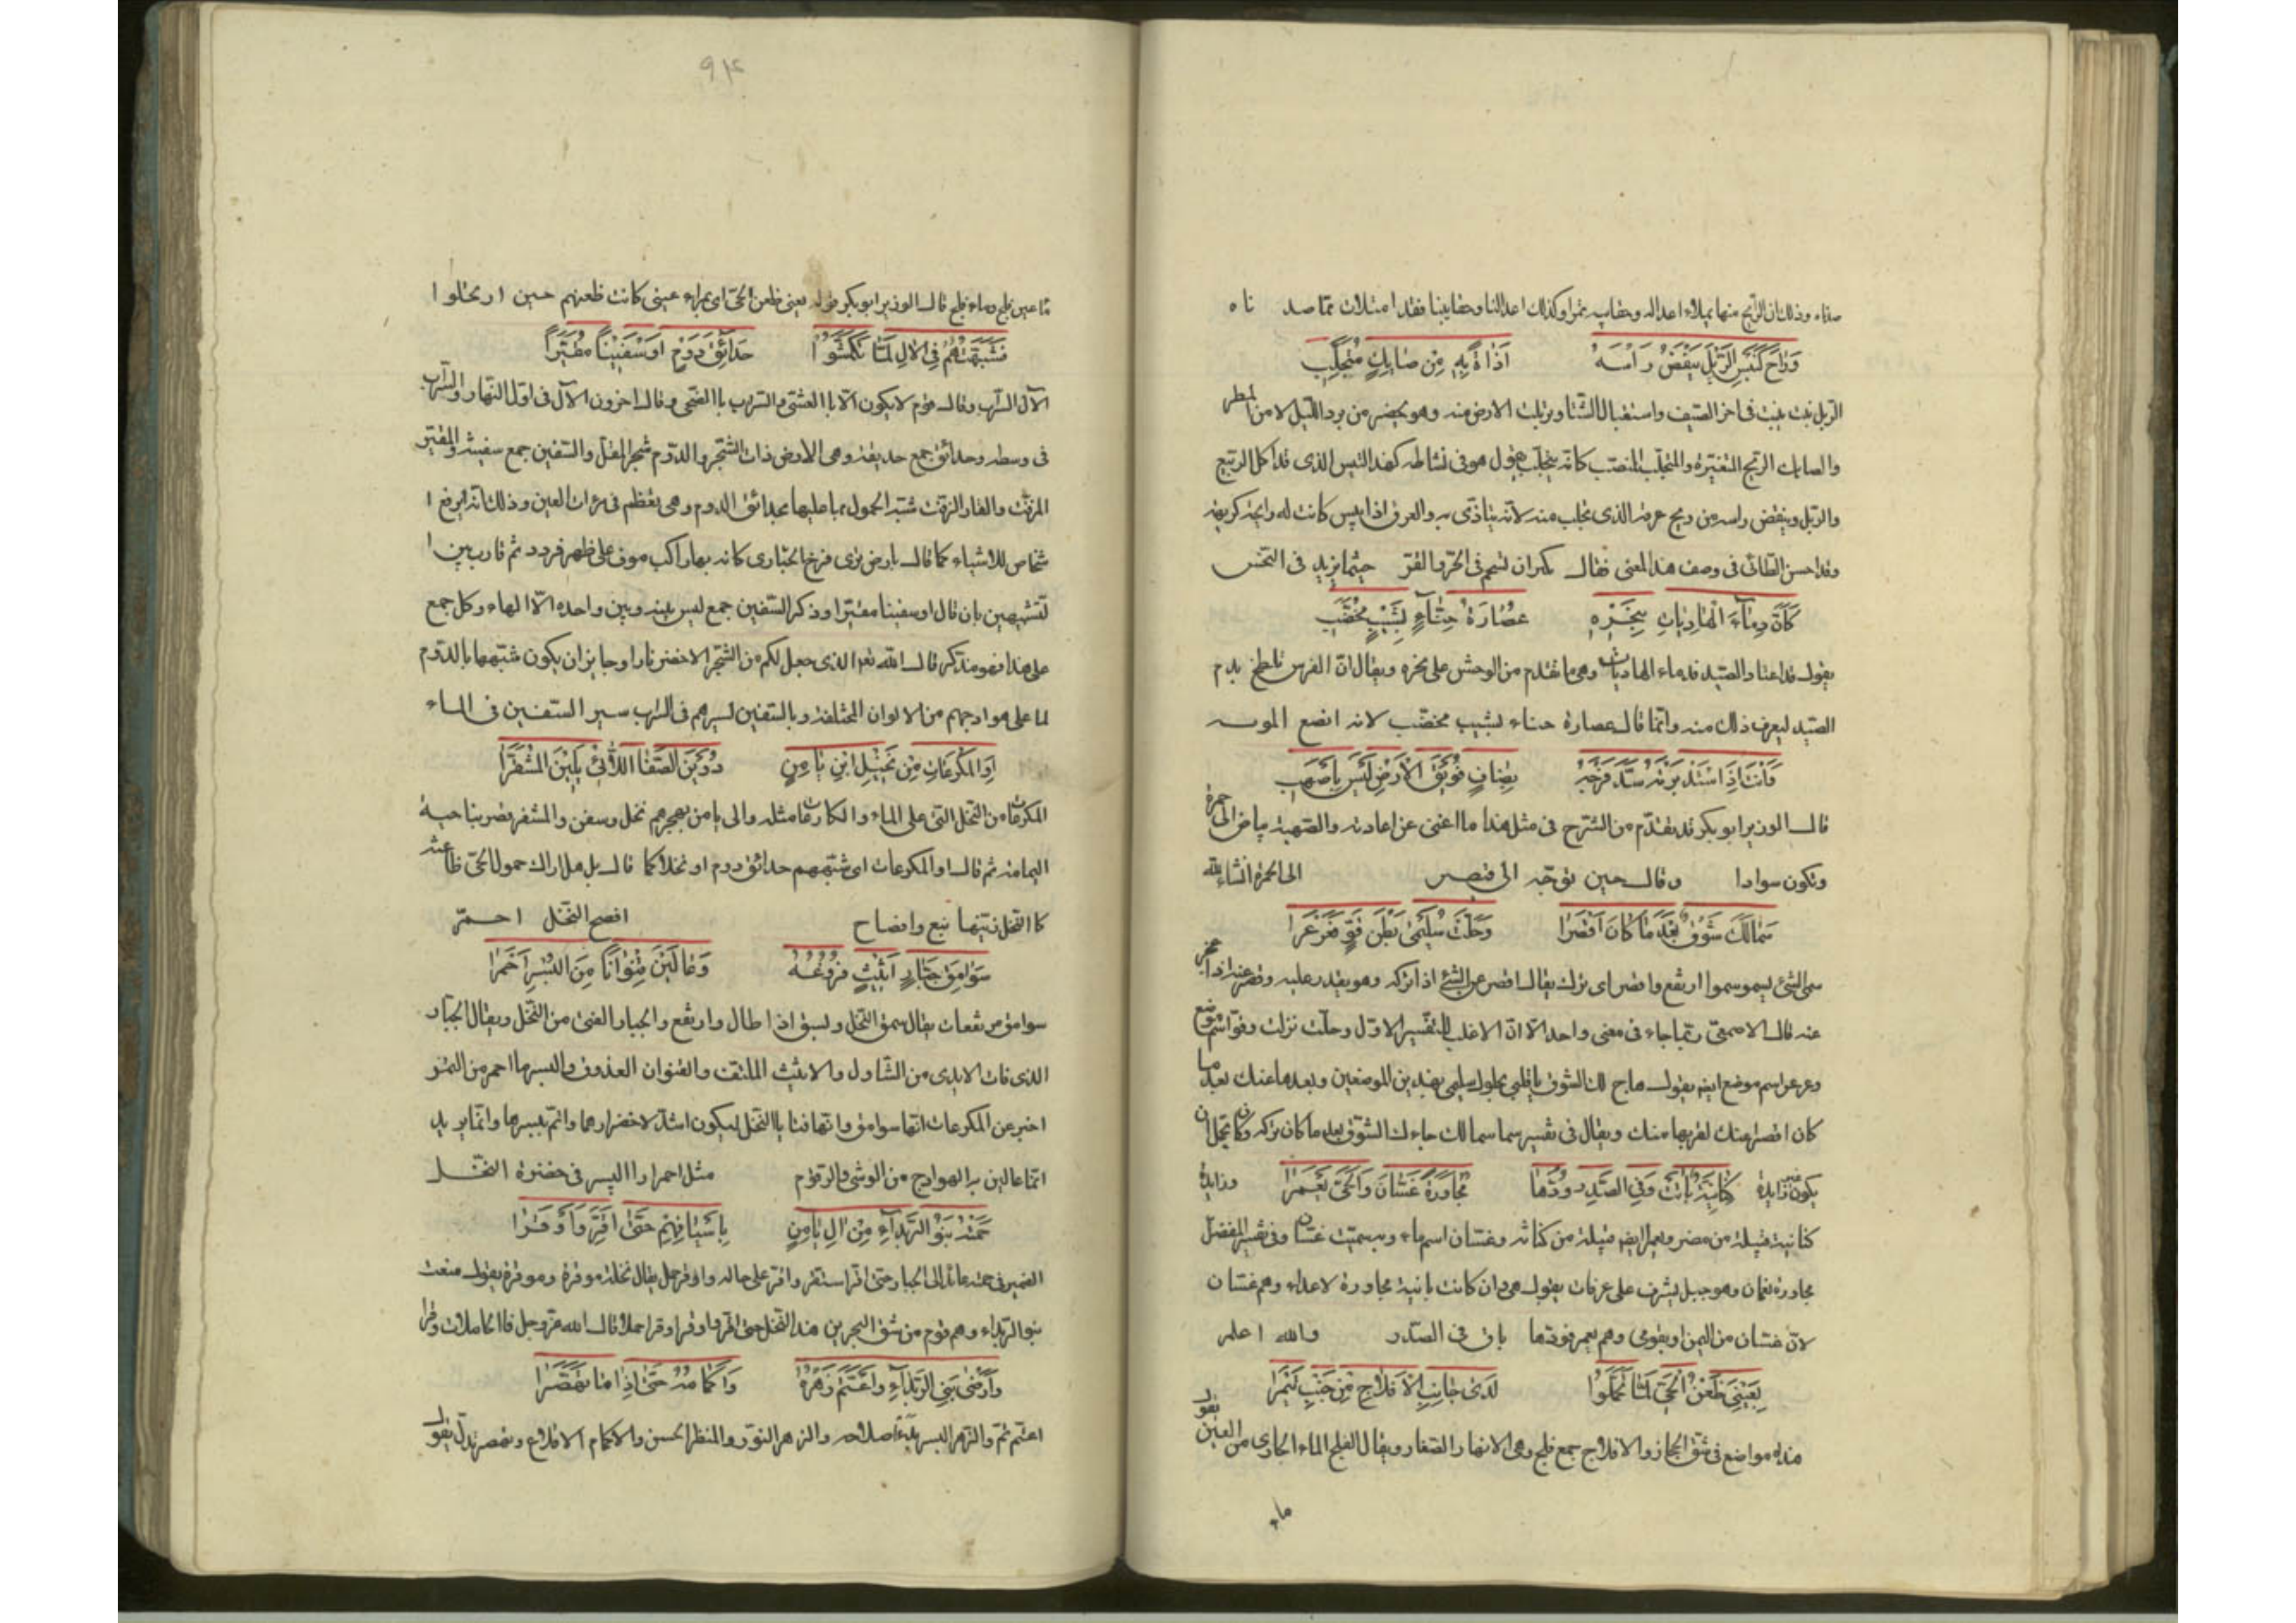 صفاه وذلك ان الرايح منها يملاء اعداله وحقايبه تمرا وكذلك اعدالنا وحقايبنا فقد امتلات مما صدناه
وَرَاحَ كَتَيْسِ الرَّبْلِ يَنْفُضُ رَأْسَهُ اَذَاةً بِهِ مِن صَايِكٍ مُتَحَلِّبِ
الربل نبت ينبت فى اخر الصيف واستقبال الشتا وتربلت الارض منه وهو يخضر من برد الليل لا من المطر
والصايك الريح المتغيرة والمتحلب المنصب كانه يتحلب يقول هو فى نشاطه كهذا التيس الذى قد اكل الربيع
والربل وينفض راسه من ريح عرقه الذى تحلب منه لانه يتاذى به والعرق اذا يبس كانت له رايحة كريهة
وقد احسن الطائى فى وصف هذا المعنى فقال
كَاَنَّ دِمَآءَ الْهَادِيَاتِ بِنَحْرِهِ عُصَارَةُ حِنَّآءٍ بِشَيْبٍ مُخَضَّبِ
يقول قد اعتاد الصيد فدماء الهاديات وهى ما تقدم من الوحش على نحره ويقال ان الفرس تلطخ بدم
الصيد ليعرف ذلك منه وانما قال عصارة حناء بشيب مخضب لانه انصع
وَاَنْتَ اِذَا اسْتَدْبَرْتَهُ سَدَّ فَرْجَهُ بِضَافٍ فُوَيْقَ الْاَرْضِ لَيْسَ بِاَصْهَبِ
قال الوزير ابو بكر قد تقدم من الشرح فى مثل هذا ما اغنى عن اعادته والصهبة بياض الى حمرة
وتكون سوادا الى الحمرة انشاء الله وقال حين توجه الى قيصر
سَمَا لَكَ شَوْقٌ بَعْدَ مَا كَانَ اَقْصَرَا وَحَلَّتْ سُلَيْمَى بَطْنَ قَوٍّ فَعَرْعَرَا
سمى الشئ يسمو سموا ارتفع واقصر اى ترك يقال اقصر عن الشئ اذا تركه وهو يقدر عليه وقصر عنه اذا عجز
عنه قال الاصمعى ربما جاء فى معنى واحد الا ان الاغلب التفسير الاول وحلت نزلت وقو اسم موضع
وعرعر اسم موضع ايضا يقول هاج لك الشوق يا قلبى بحلول سليمى بهذين الموضعين وبعدها عنك بعد ما
كان اقصر عنك لقربها منك ويقال فى تفسير سما سما لك جاءك الشوق بعد ما كان تركه وكان تحتمل ان
يكون غير زايدة وزايدة كِنَانِيَّةٌ بَانَتْ وَفِى الصَّدْرِ وُدُّهَا مُجَاوِرَةٌ غَسَّانَ وَالْحَىَّ يَعْمَرَا
كنانية قبيلة من مضر ويعمر ايضا قبيلة من كنانة وغسان اسم ماء وبه سميت غسان وفى تفسير المفضل
مجاورة نعمان وهو جبل يشرف على عرفات يقول هى وان كانت بانية مجاورة لاعداء وهم غسان
لان غسان من اليمن او بقومى وهم يعمر فودها باق فى الصدر والله اعلم
بِعَيْنِى ظَعْنُ الْحَىِّ لَمَّا تَحَمَّلُوْا لَدَى جَانِبِ الْاَفْلَاجِ مِنْ جَنْبِ تَيْمَرَا
هذه مواضع فى شق الحجاز والافلاج جمع فلج وهى الانهار الصغار ويقال الفلج الماء الجارى من العين يقول
ماء
٩٢
ما عين فلج وماء فلج قال الوزير ابو بكر قوله بعينى ظعن الحى اى بمراى عينى كانت ظعنهم حين ارتحلوا
فَشَبَّهْتُهُمْ فِى الْاٰلِ لَمَّا تَكَمَّشُوْا حَدَآئِقَ دَوْمٍ اَوْ سَفِيْنًا مُقَيَّرَا
الآل السراب وقال قوم لا يكون الآل الا بالعشى والسراب بالضحى وقال اخرون الآل فى اول النهار والسراب
فى وسطه وحدائق جمع حديقة وهى الارض ذات الشجر والدوم شجر المقل والسفين جمع سفينة والمقير
المزفت والقار الزفت شبه الحمول بما عليها بحدائق الدوم وهى تعظم فى مرات العين وذلك انه
للاشياء كما قال بارض ترى فرخ الحبارى كانه بها راكب موف على ظهر قردد ثم قارب بين ا
لتشبيهين بان قال او سفينا مقيرا وذكر السفين جمع ليس بينه وبين واحده الا الهاء وكل جمع
على هذا فهو مذكر قال الله تعالى الذى جعل لكم من الشجر الاخضر نارا وجايز ان يكون شبهها بالدوم
لما على هوادجهم من الالوان المختلفة وبالسفين لسيرهم فى السراب سير السفين فى الماء
اَوِ الْمُكْرَعَاتِ مِن نَخِيْلِ ابْنِ يَامِنٍ دُوَيْنَ الصَّفَا اللَّائِى يَلِيْنَ الْمُشَقَّرَا
المكرعات من النخل التى على الماء والكارعات مثله وال يامن بهجر لهم نخل وسفن والمشقر قصر بناحية
اليمامة ثم قال او المكرعات اى شبههم حدائق دوم او نخلا كما قال بل هل اراك حمول الحى ظاعنة
كالنخل زينها ينع وافضاح افضح النخل احمر
سَوَامِقَ جَبَّارٍ اَثِيْثٍ فُرُوْعُهُ وَعَالَيْنَ قِنْوَانًا مِنَ الْبُسْرِ اَحْمَرَا
سوامق مرتفعات يقال سمق النخل وبسق اذا طال وارتفع والجبار الفتى من النخل ويقال الجبار
الذى فات الايدى من التناول والاثيث الملتف والقنوان العذوق والبسر ما احمر من التمر
اخبر عن المكرعات انها سوامق وانها فتايا النخل ليكون اشد لاخضرارها واتم لبسرها وانما يريد
انما عالين به الهوادج من الوشى والرقوم مثل احمرار البسر فى خضرة النخل
حَمَتْهُ بَنُوْ الرَّبْدَآءِ مِنْ اٰلِ يَامِنٍ بِاَسْيَافِهِمْ حَتَّى اُقِرَّ وَاُوْقِرَا
الضمير فى حمته عائد الى الجبار حتى اقر استقر واقر على حاله واوقر حمل يقال نخلة موقرة وموقرة يقول منعت
بنو الربداء وهم قوم من شق البحرين هذا النخل حتى اقر واوقر اوقر حملا قال الله عز وجل فالحاملات وقرا
وَاَرْضَى بَنِى الرَّبْدَآءِ وَاعْتَمَّ زَهْوُهُ وَاَكْمَامُهُ حَتَّى اِذَا مَا تَهَصَّرَا
اعتم تم والزهو البسر والزهر النور والمنظر الحسن والاكمام الاقلاع وتهصر تدلى يقول